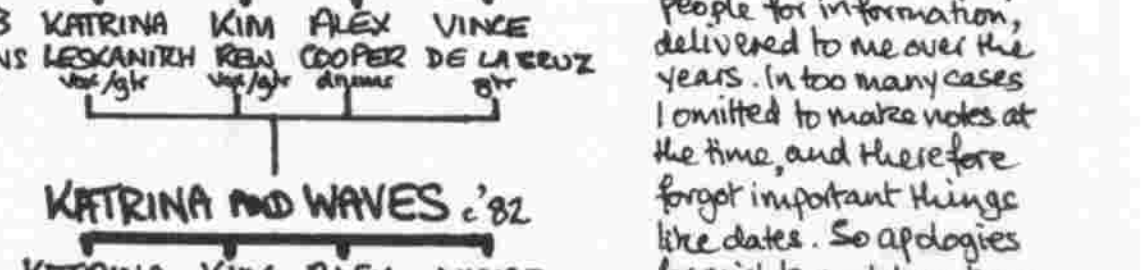 KATRINA KIM ALEX VINCE
LESKANITCH REW COOPER DE LA CRUZ
vox/gtr vox/gtr drums gtr
KATRINA AND WAVES c.'82
KATRINA KIM ALEX VINCE
people for information,
delivered to me over the
years. In too many cases
I omitted to make notes at
the time, and therefore
forgot important things
like dates. So apologies